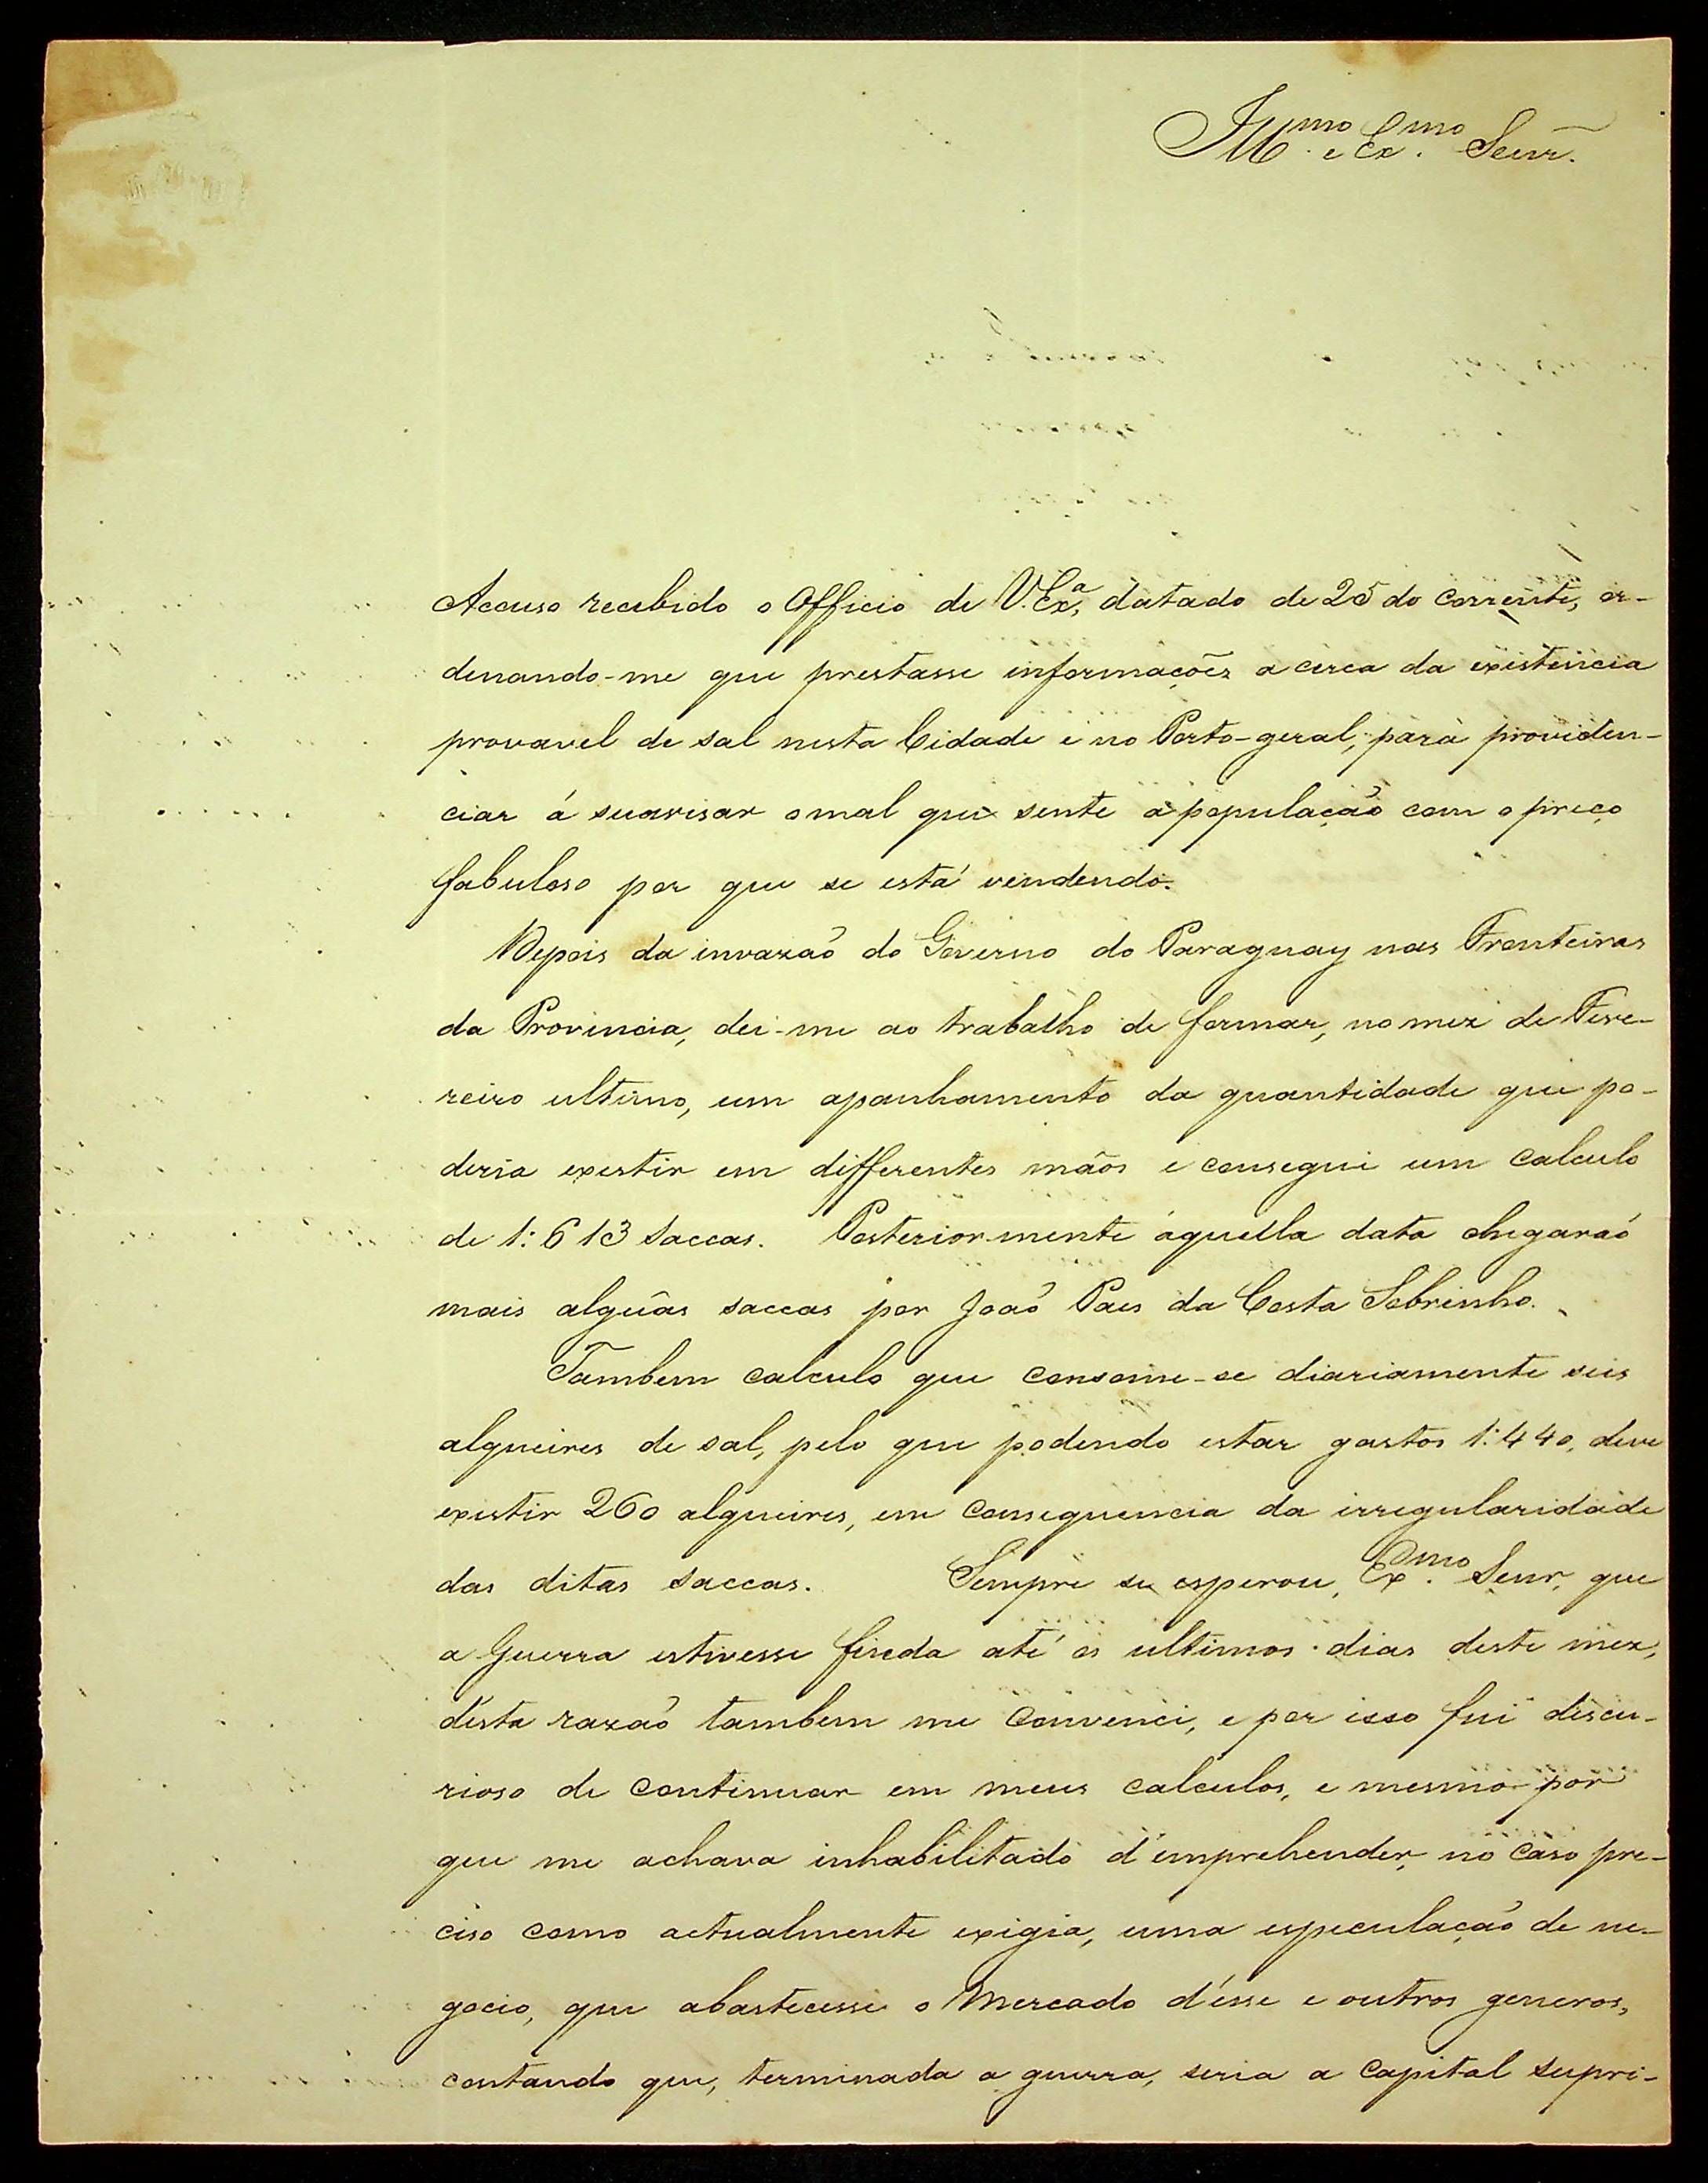 Illmo. e Exmo. Senr.
Accuso recebido o Officio de V. Exa, datado de 25 do corrente, or-
denando-me que prestasse informações a cerca da existencia
provavel de sal nesta Cidade e no Porto-geral, para providen-
ciar á suavisar o mal que sente a população com o preço
fabuloso por que se está vendendo.
Depois da invazaõ do Governo do Paraguay nas Fronteiras
da Provincia, dei-me ao trabalho de formar, no mez de Feve-
reiro ultimo, um apanhamento da quantidade que po-
deria existir em differentes mãos e consegui um calculo
de 1:613 saccas. Posteriormente áquella data chegaraõ
mais algũas saccas por Joaõ Paes da Costa Sobrinho.
Tambem calculo que consome-se diariamente seis
alqueires de sal, pelo que podendo estar gastos 1:440, deve
existir 260 alqueires, em consequencia da irregularidade
das ditas saccas. Sempre se esperou, Exmo. Senr, que
a Guerra estivesse finda até os ultimos dias deste mez,
d'esta razaõ tambem me convenci, e por isso fui discu-
rioso de continuar em meus calculos, e mesmo por
que me achava inhabilitado d'emprehender, no caso pre-
ciso como actualmente exigia, uma especulaçaõ de ne-
gocio, que abastecesse o Mercado d'esse e outros generos,
contando que, terminada a guerra, seria a Capital supri-